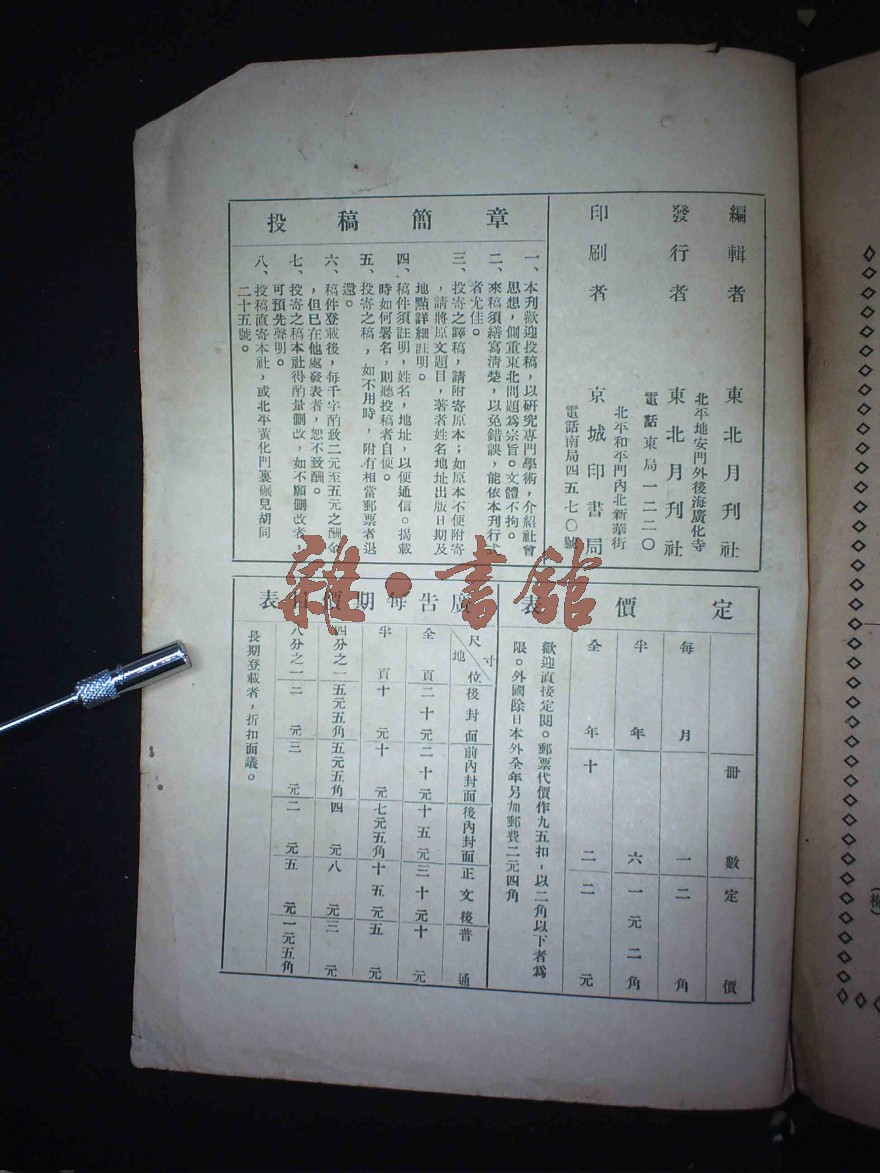 編輯者 東北月刊社
北平地安門外後海廣化寺
發行者 東北月刊社
電話東局一二二〇
北平和平門內北新華街
印刷者 京城印書局
電話南局四五七〇號
投稿簡章
一、本刊歡迎投稿，以研究專門學術，介紹社會
思想，側重東北問題爲宗旨。文體不拘。
二、來稿須繕寫清楚，以免錯誤，能依本刊行式
者尤佳。
三、投寄之譯稿，請附寄原本；如原本不便附寄
，請將原文題目，著者姓名地址出版日期及
地點詳細註明。
四、稿件須註明，姓名，地址，以便通信。揭載
時如何署名，則聽投稿者自便。
五、投寄之稿，如不用時，附有相當郵票者退
還。
六、稿件登載後，每千字酌致二元至五元之酬金
，但已在他處發表者，恕不致酬。
七、投寄之稿本社得酌量刪改，如不願刪改者，
可預先聲明。
八、投稿直寄本社，或北平黃化門裏碾兒胡同
二十五號。
定價表
冊數 定價
每月 一 二角
半年 六 一元二角
全年 十二 二元
歡迎直接定閱。郵票代價作九五扣，以二角以下者爲
限。外國除日本外全年另加郵費二元四角
廣告每期價目表
尺寸 地位 後封面 前內封面 後內封面 正文後 普通
全頁 二十元 二十元 十五元 三十元 十元
半頁 十元 十元 七元五角 十五元 五元
四分之一 五元五角 五元五角 四元 八元 三元
八分之一 二元 三元 二元 五元 一元五角
長期登載者，折扣面議。
雜·書館